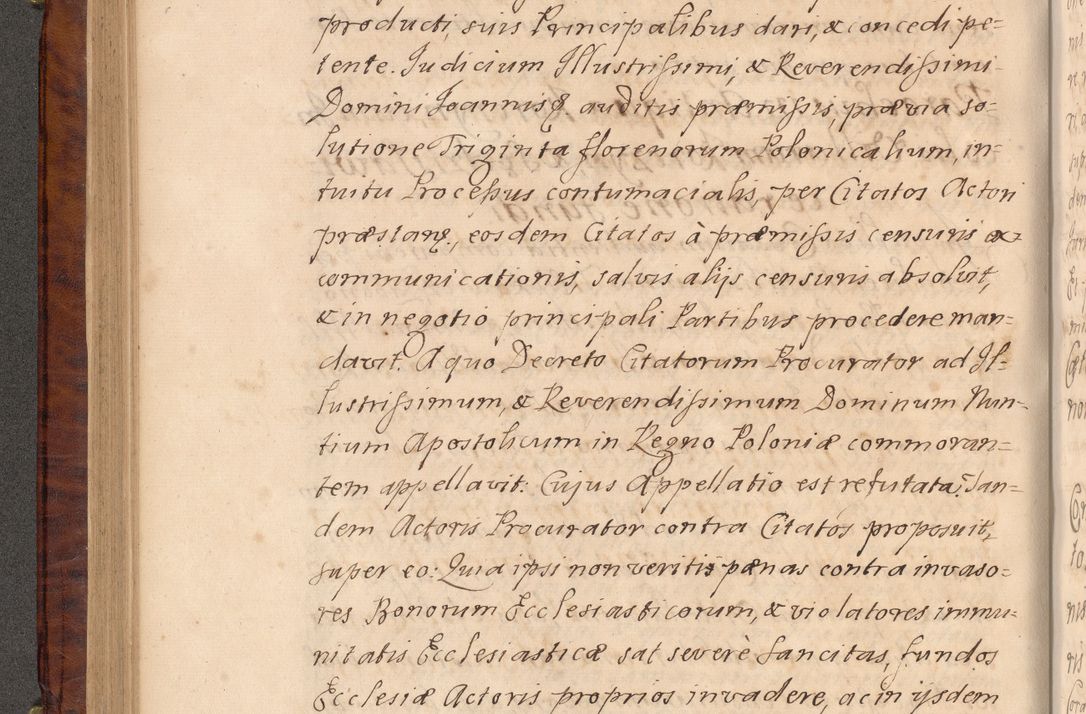 producti, suis Principalibus dari, & concedi pe=
tente. Judicium Illustrissimi, & Reverendissimi
Domini Joannis & auditis præmissis, prævia so=
lutione Triginta florenorum Polonicalium, in=
tuitu Processus contumacialis, per Citatos Actori
præstanę, eosdem Citatos à præmissis censuris ex=
communicationis, salvis alijs censuris absolvit,
& in negotio principali Partibus procedere man=
davit. A quo Decreto Citatorum Procurator ad Il=
lustrissimum, & Reverendissimum Dominum Nun=
tium Apostolicum in Regno Poloniæ commoran=
tem appellavit: Cujus Appellatio est refutata. Tan=
dem Actoris Procurator contra Citatos proposuit,
super eo: Quia ipsi non veritis pænas contra invaso=
res Bonorum Ecclesiasticorum, & violatores immu=
nitatis Ecclesiasticæ sat severè sancitas, fundos
Ecclesiæ Actoris proprios invadere, ac in ijsdem